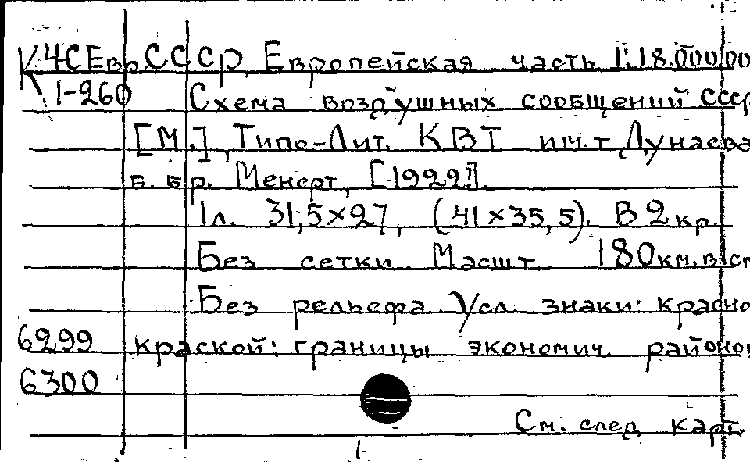 К ЧСЕвр. СССР, Европейская часть 1:18.000.00
1-260 Схема воздушных сообщений СССР
[М.], Типо-Лит. КВТ им. т. Дунаева
б. бр. Менерт, [1922?].
1 л. 31,5×27, (41×35,5). В 2 кр.
Без сетки. Масшт. 180 км. в см
Без рельефа. Усл. знаки: красно
6299 краской: границы экономич. районов
6300
См. след. карт.